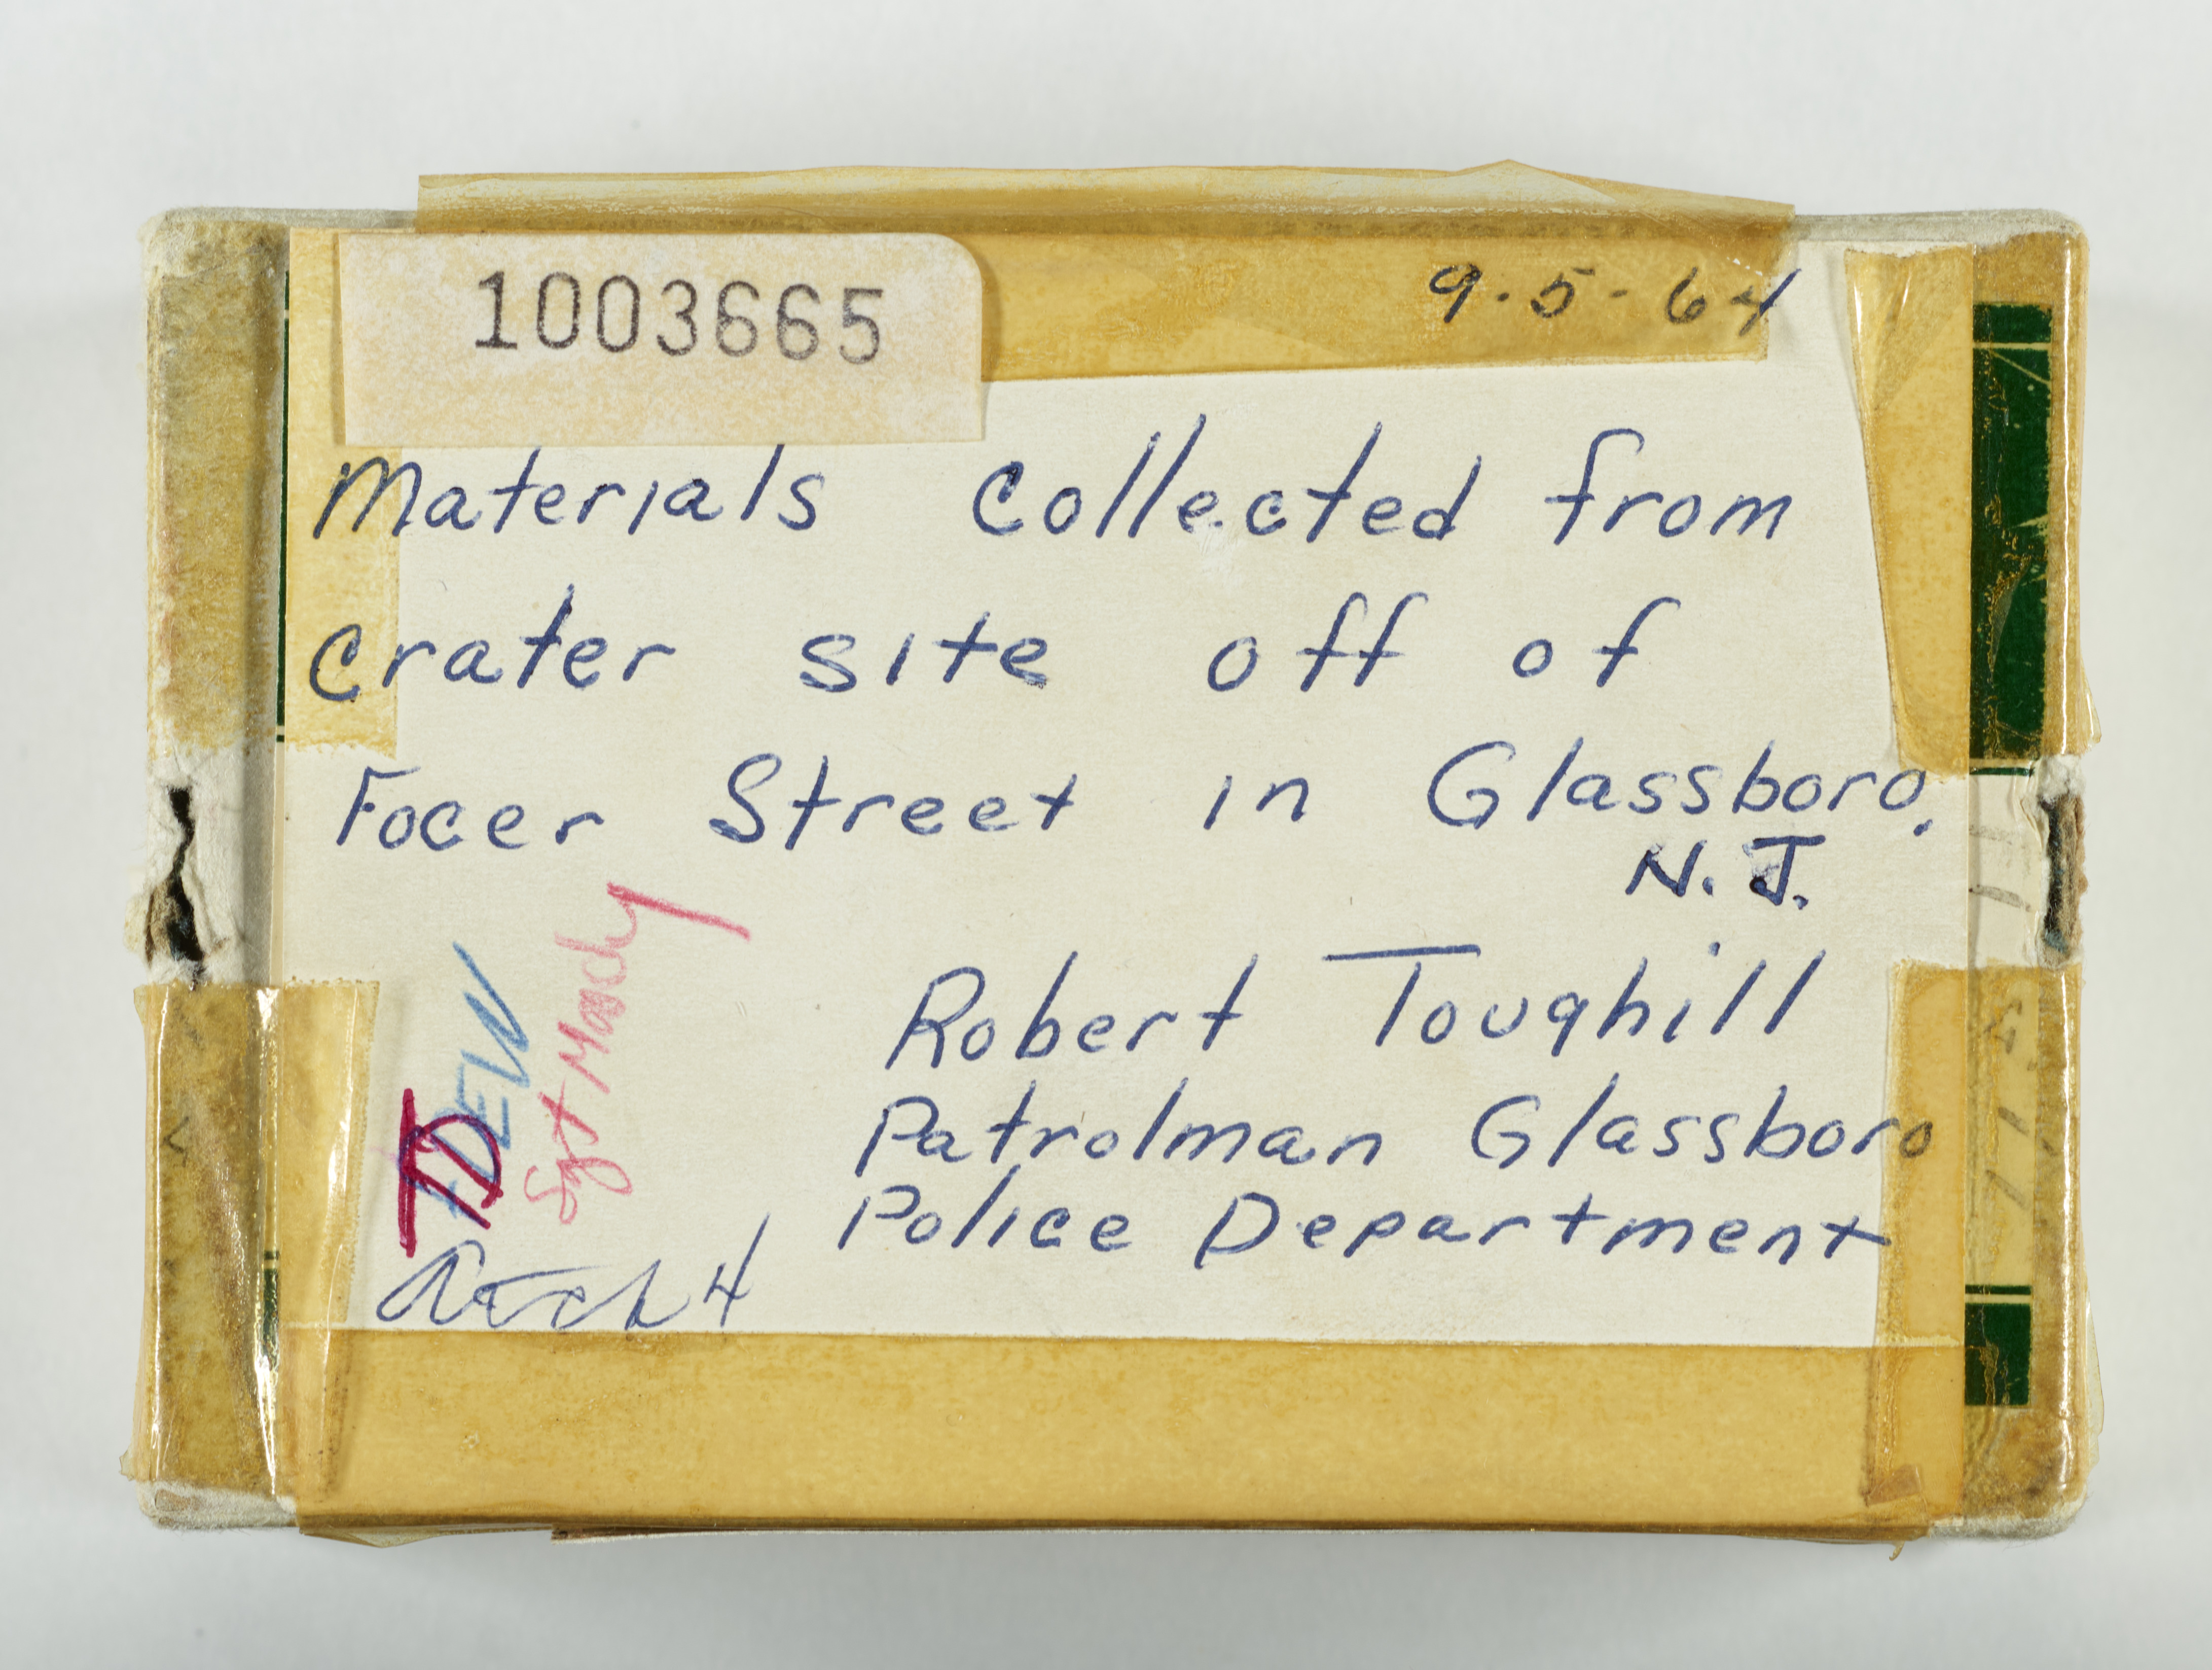 1003665
9.5.64
Materials Collected from
Crater site off of
Focer Street in Glassboro.
N.J.
Robert Toughill
Patrolman Glassboro
Police Department
TDEW
Sgt Moody
TD
4